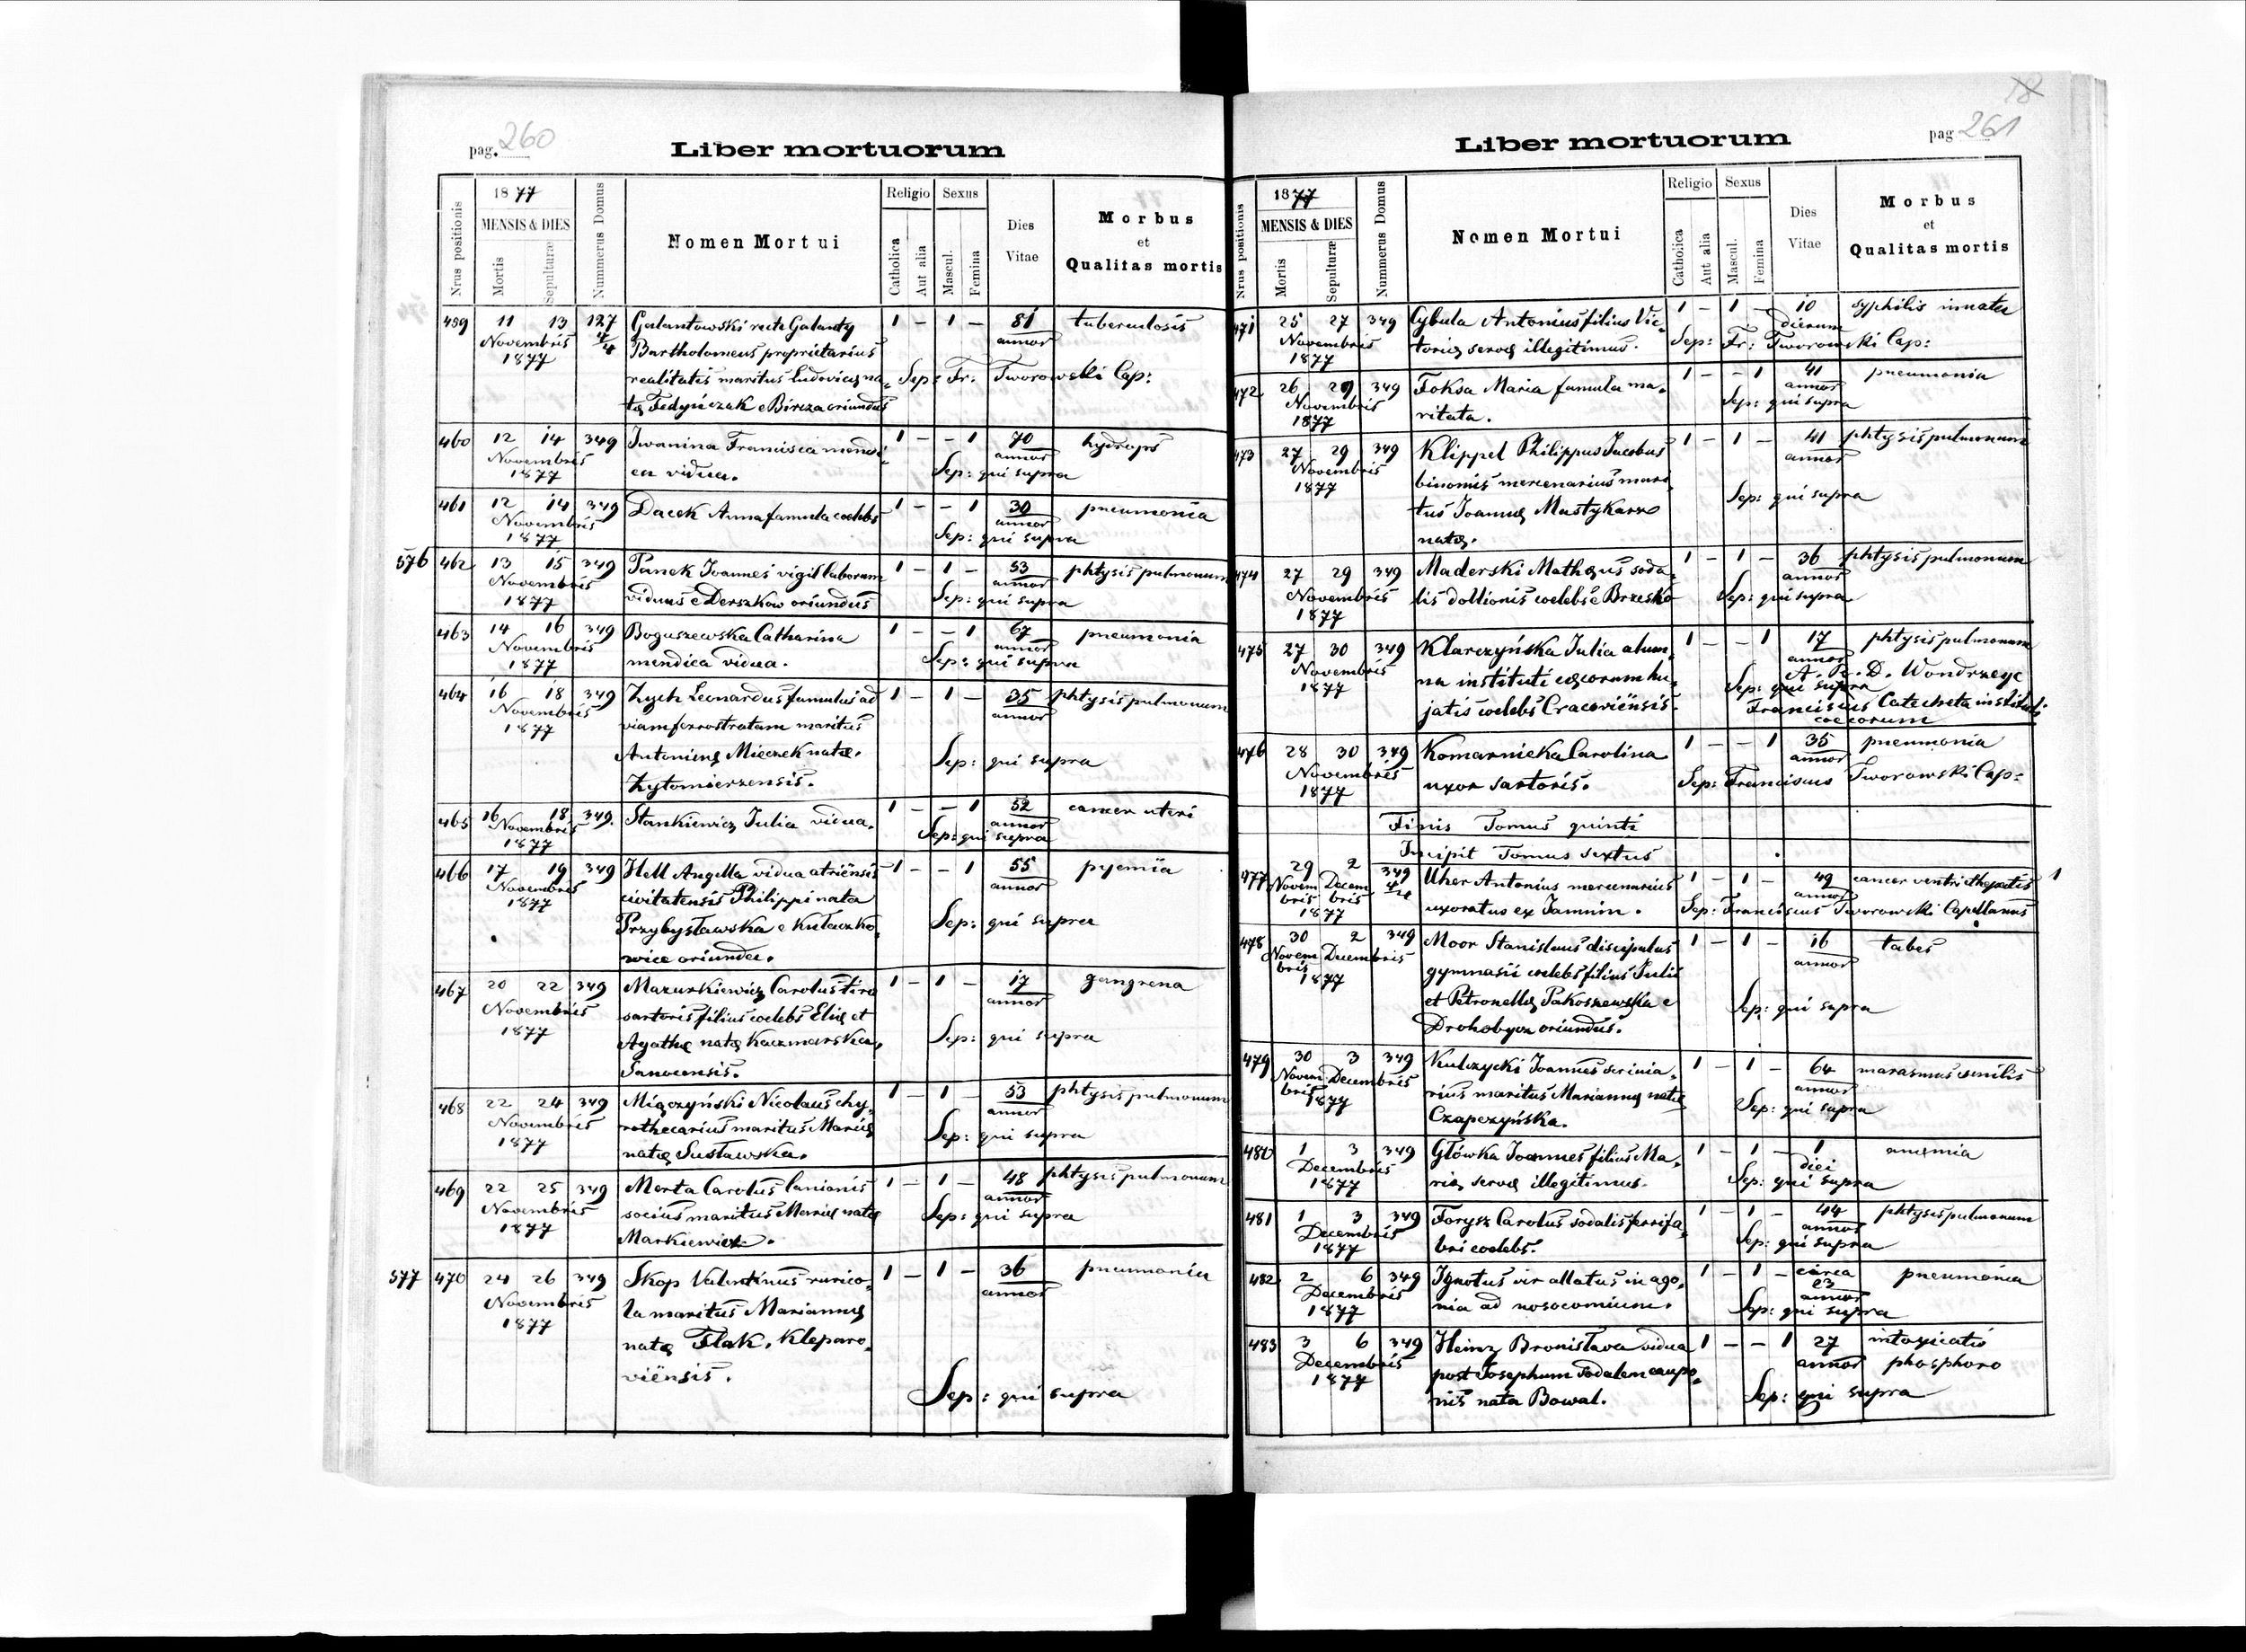 pag. 260
Liber mortuorum
Nrus positionis
1877
MENSIS & DIES
Mortis
Sepulturæ
Nummerus Domus
Nomen Mortui
Religio
Catholica
Aut alia
Sexus
Mascul.
Femina
Dies
Vitae
Morbus
et
Qualitas mortis
459 11 13 127 Galantowski recte Galanty 1 – 1 – 81 tuberculosis
Novembris 4/4 annor
1877 Bartholomeus proprietarius
realitatis maritus Ludovicæ na, Sep: Fr: Tworowski Cap:
tæ Fedyńczak e Bircza oriundus
460 12 14 349 Iwanina Francisca mendi, 1 – – 1 70 hydrops
Novembris annor
1877 ca vidua. Sep: qui supra
461 12 14 349 Dacek Anna famula coelebs 1 – – 1 30 pneumonia
Novembris annor
1877 Sep: qui supra
576 462 13 15 349 Panek Joannes vigil laborum 1 – 1 – 53 phtysis pulmonum
Novembris annor
1877 viduus e Derszkow oriundus Sep: qui supra
463 14 16 349 Boguszewska Catharina 1 – – 1 67 pneumonia
Novembris annor
1877 mendica vidua. Sep: qui supra
464 16 18 349 Zych Leonardus famulus ad 1 – 1 – 35 phtysis pulmonum
Novembris annor
1877 viam ferrostratam maritus
Antoninæ Mieczek natæ. Sep: qui supra
Zytomierzensis.
465 16 18 349. Stankiewicz Julia vidua. 1 – – 1 52 cancer uteri
Novembris annor
1877 Sep: qui supra
466 17 19 349 Hell Angella vidua atriensis 1 – – 1 55 pyemia
Novembris annor
1877 civitatensis Philippi nata
Przybysławska e Kułaczko, Sep: qui supra
wice oriunda.
467 20 22 349 Mazurkiewicz Carolus tiro 1 – 1 – 17 gangrena
Novembris annor
1877 sartoris filius coelebs Eliæ et
Agathæ natæ Kaczmarska, Sep: qui supra
Sanocensis.
468 22 24 349 Miączyński Nicolaus chy, 1 – 1 – 53 phtysis pulmonum
Novembris annor
1877 rothecarius maritus Mariæ Sep: qui supra
natæ Susławska.
469 22 25 349 Merta Carolus lanionis 1 – 1 – 48 phtysis pulmonum
Novembris annor
1877 socius maritus Mariæ natæ Sep: qui supra
Markiewicz.
577 470 24 26 349 Skop Valentinus rurico, 1 – 1 – 36 pneumonia
Novembris annor
1877 la maritus Mariannæ
natæ Flak. Kleparo,
viënsis. Sep: qui supra
18
pag 261
Liber mortuorum
Nrus positionis
1877
MENSIS & DIES
Mortis
Sepulturæ
Nummerus Domus
Nomen Mortui
Religio
Catholica
Aut alia
Sexus
Mascul.
Femina
Dies
Vitae
Morbus
et
Qualitas mortis
471 25 27 349 Cybula Antonius filius Vic, 1 – 1 – 10 syphilis innata
Novembris dierum
1877 toriæ servæ illegitimus. Sep: Fr: Tworowski Cap:
472 26 29 349 Foksa Maria famula ma, 1 – – 1 41 pneumonia
Novembris annor
1877 ritata. Sep: qui supra
473 27 29 349 Klippel Philippus Jacobus 1 – 1 – 41 phtysis pulmonum
Novembris annor
1877 binomis mercenarius mari,
tus Joannæ Mustykarz Sep: qui supra
natæ.
474 27 29 349 Maderski Mathæus soda, 1 – 1 – 36 phtysis pulmonum
Novembris annor
1877 lis dollionis coelebs e Brzesko Sep: qui supra
475 27 30 349 Klarczyńska Julia alum, 1 – – 1 17 phtysis pulmonum
Novembris annor
1877 na instituti cæcorum hu, Sep: qui supra A. R. D. Wondrzeyc
jatis coelebs Cracoviënsis. Franciscus Catecheta instituti
coecorum
476 28 30 349 Komarnicka Carolina 1 – – 1 35 pneumonia
Novembris annor
1877 uxor sartoris. Sep: Franciscus Tworowski Cap:
Finis Tomus quinti
Incipit Tomus Sextus
477 29 2 349 Uher Antonius mercenarius 1 – 1 – 49 cancer ventri et hepatis 1
Novem Decem 4/4 annor
bris bris
1877 uxoratus ex Jamnin. Sep: Franciscus Tworowski Capellanus
478 30 2 349 Moor Stanislaus discipulus 1 – 1 – 16 tabes
Novem Decembris annor
bris
1877 gymnasii coelebs filius Julii
et Petronellæ Pakoszewska e Sep: qui supra
Drohobycz oriundus.
479 30 3 349 Kulczycki Joannes scrinia, 1 – 1 – 64 marasmus senilis
Novem Decembris annor
bris
1877 rius maritus Mariannæ natæ Sep: qui supra
Czapczyńska.
480 1 3 349 Główka Joannes filius Ma, 1 – 1 – 1 anemia
Decembris diei
1877 riæ servæ illegitimus. Sep: qui supra
481 1 3 349 Forysz Carolus sodalis ferrifa, 1 – 1 – 44 phtysis pulmonum
Decembris annor
1877 bri coelebs. Sep: qui supra
482 2 6 349 Ignotus vir allatus in ago, 1 – 1 – circa pneumonia
Decembris 23
annor
1877 nia ad nosocomium. Sep: qui supra
483 3 6 349 Heinz Bronislava vidua 1 – – 1 27 intoxicatio
Decembris annor phosphoro
1877 post Josephum sodalem caupo,
nis nata Bowal. Sep: qui supra